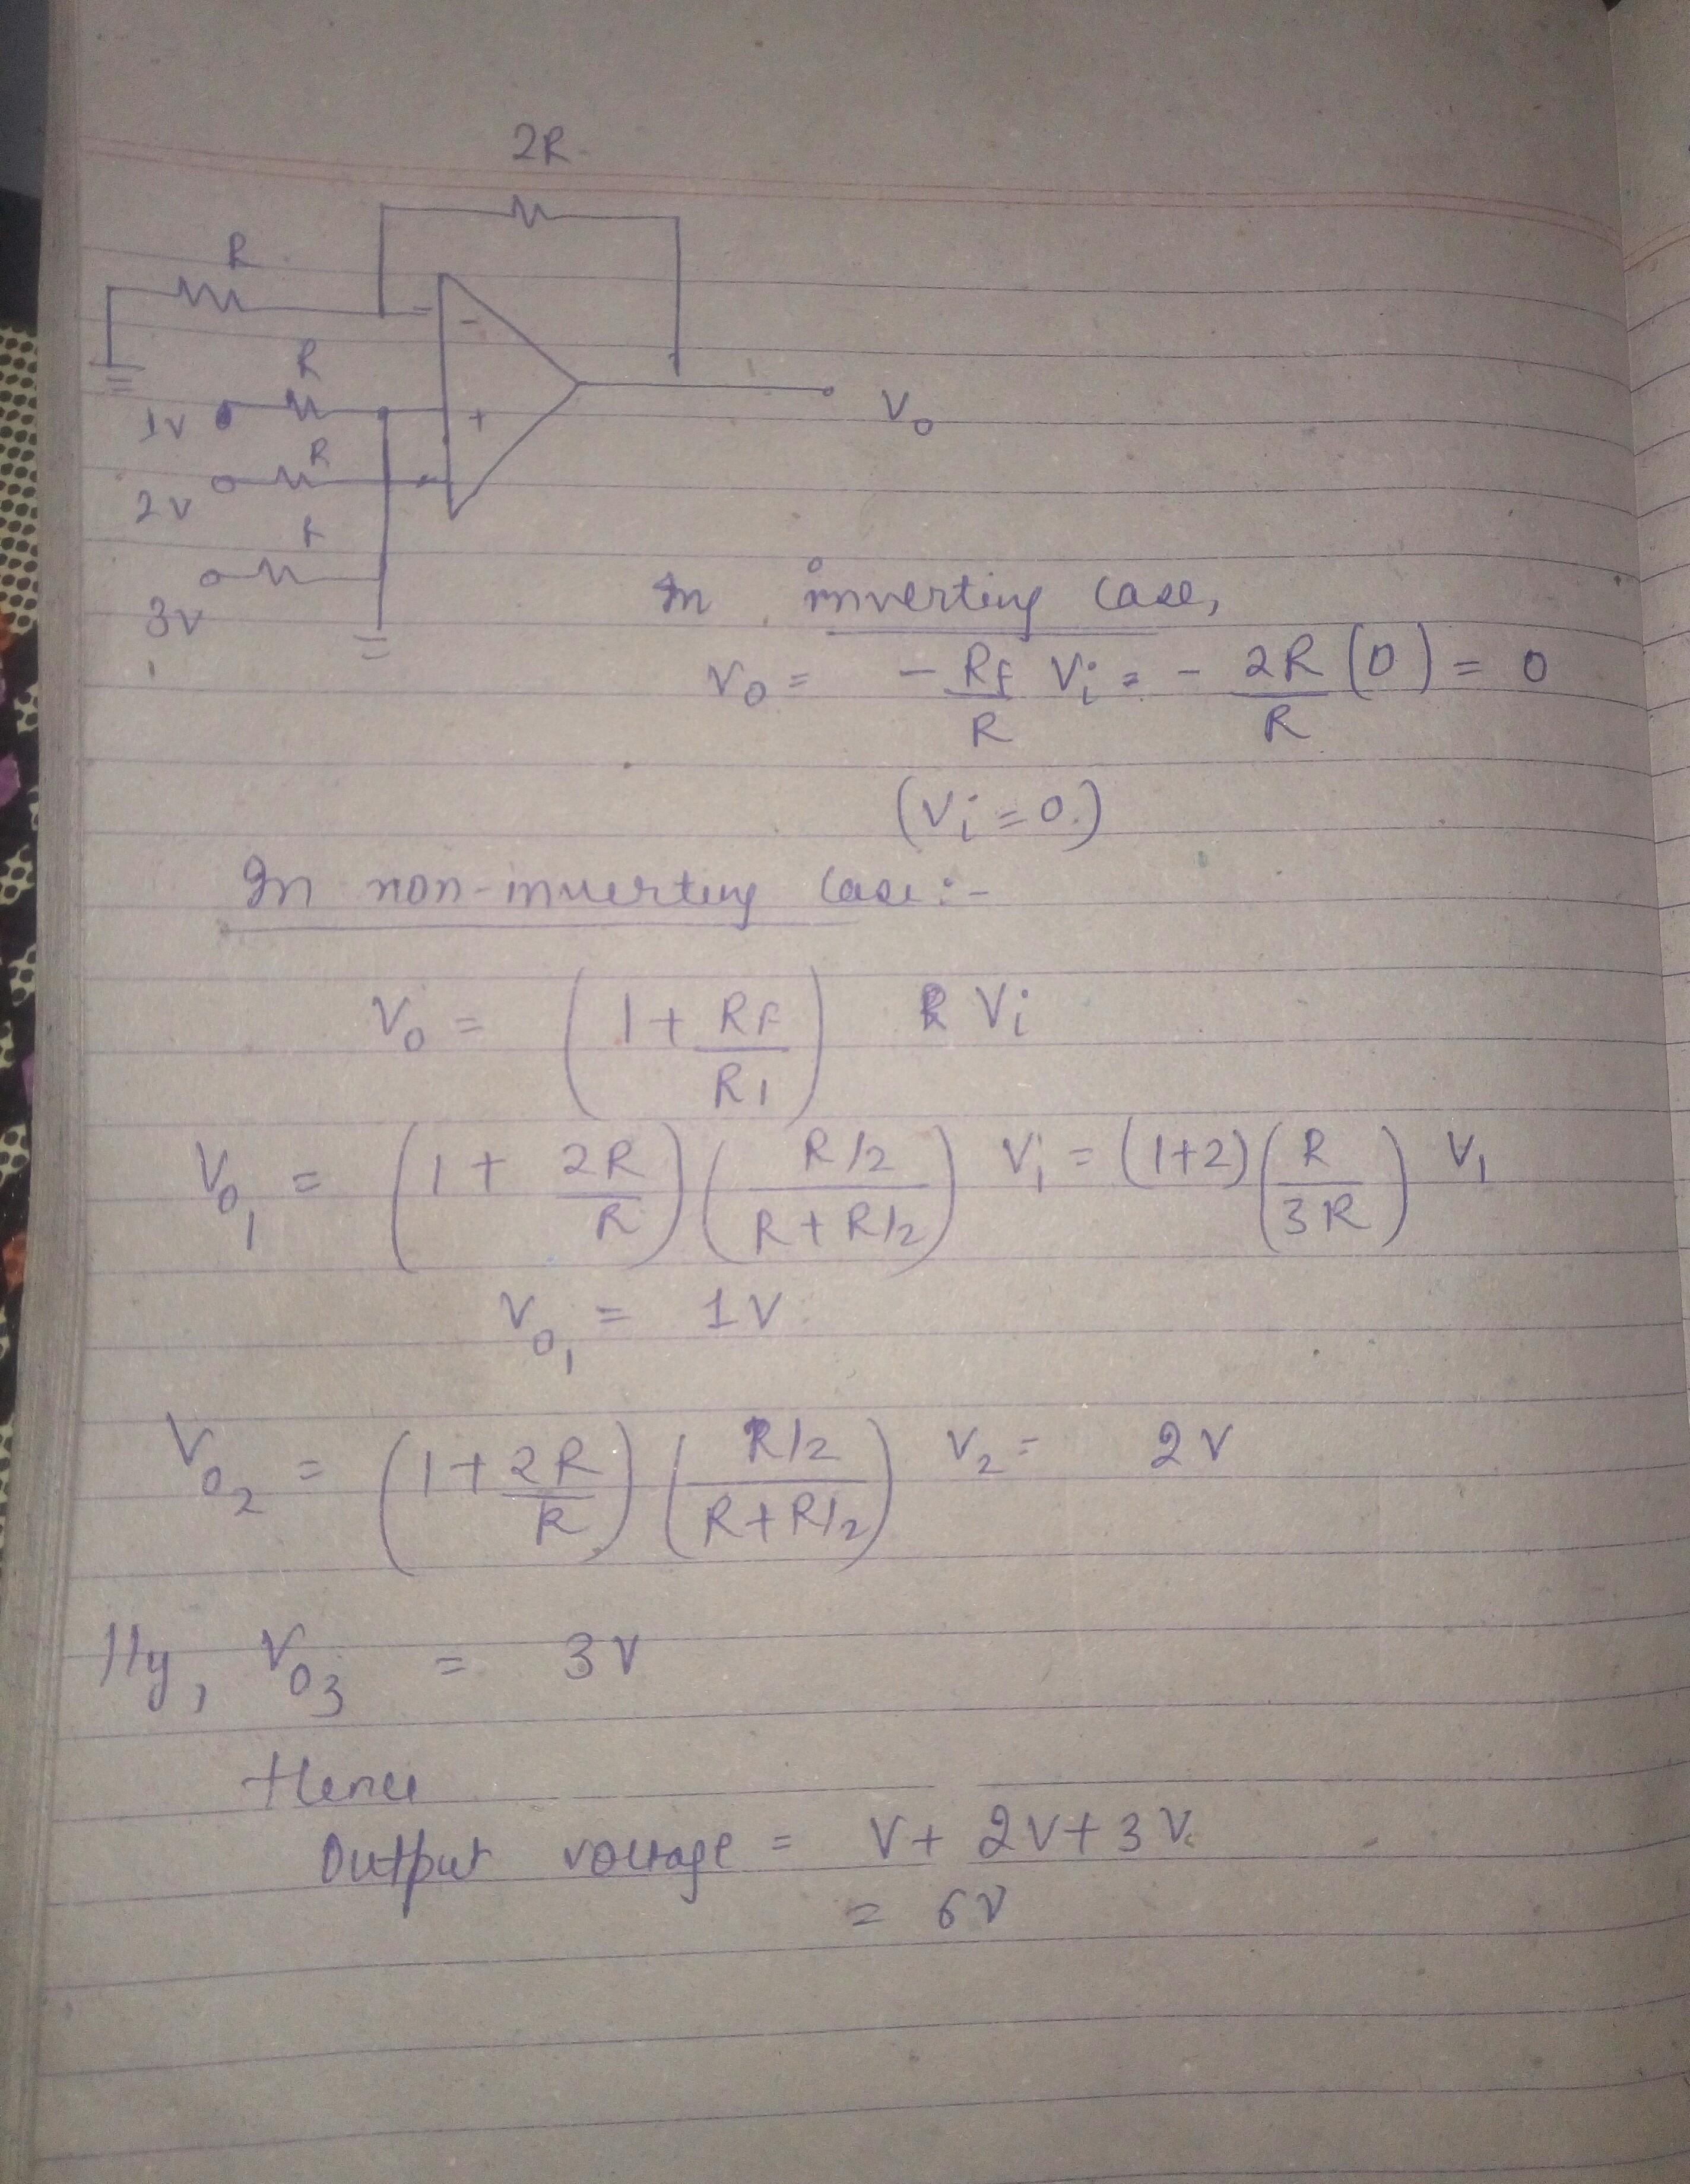 2R
R
R
1V
R
2V
R
3V
-
+
V₀
In inverting case,
V₀ = - Rf/R Vi = - 2R/R (0) = 0
(Vi = 0.)
In non-inverting case :-
V₀ = (1 + Rf/R1) Vi
V₀₁ = (1 + 2R/R) (R/2 / R + R/2) V₁ = (1+2) (R/3R) V₁
V₀₁ = 1V
V₀₂ = (1 + 2R/R) (R/2 / R + R/2) V₂ = 2V
lly, V₀₃ = 3V
Hence
Output voltage = V + 2V + 3V
= 6V